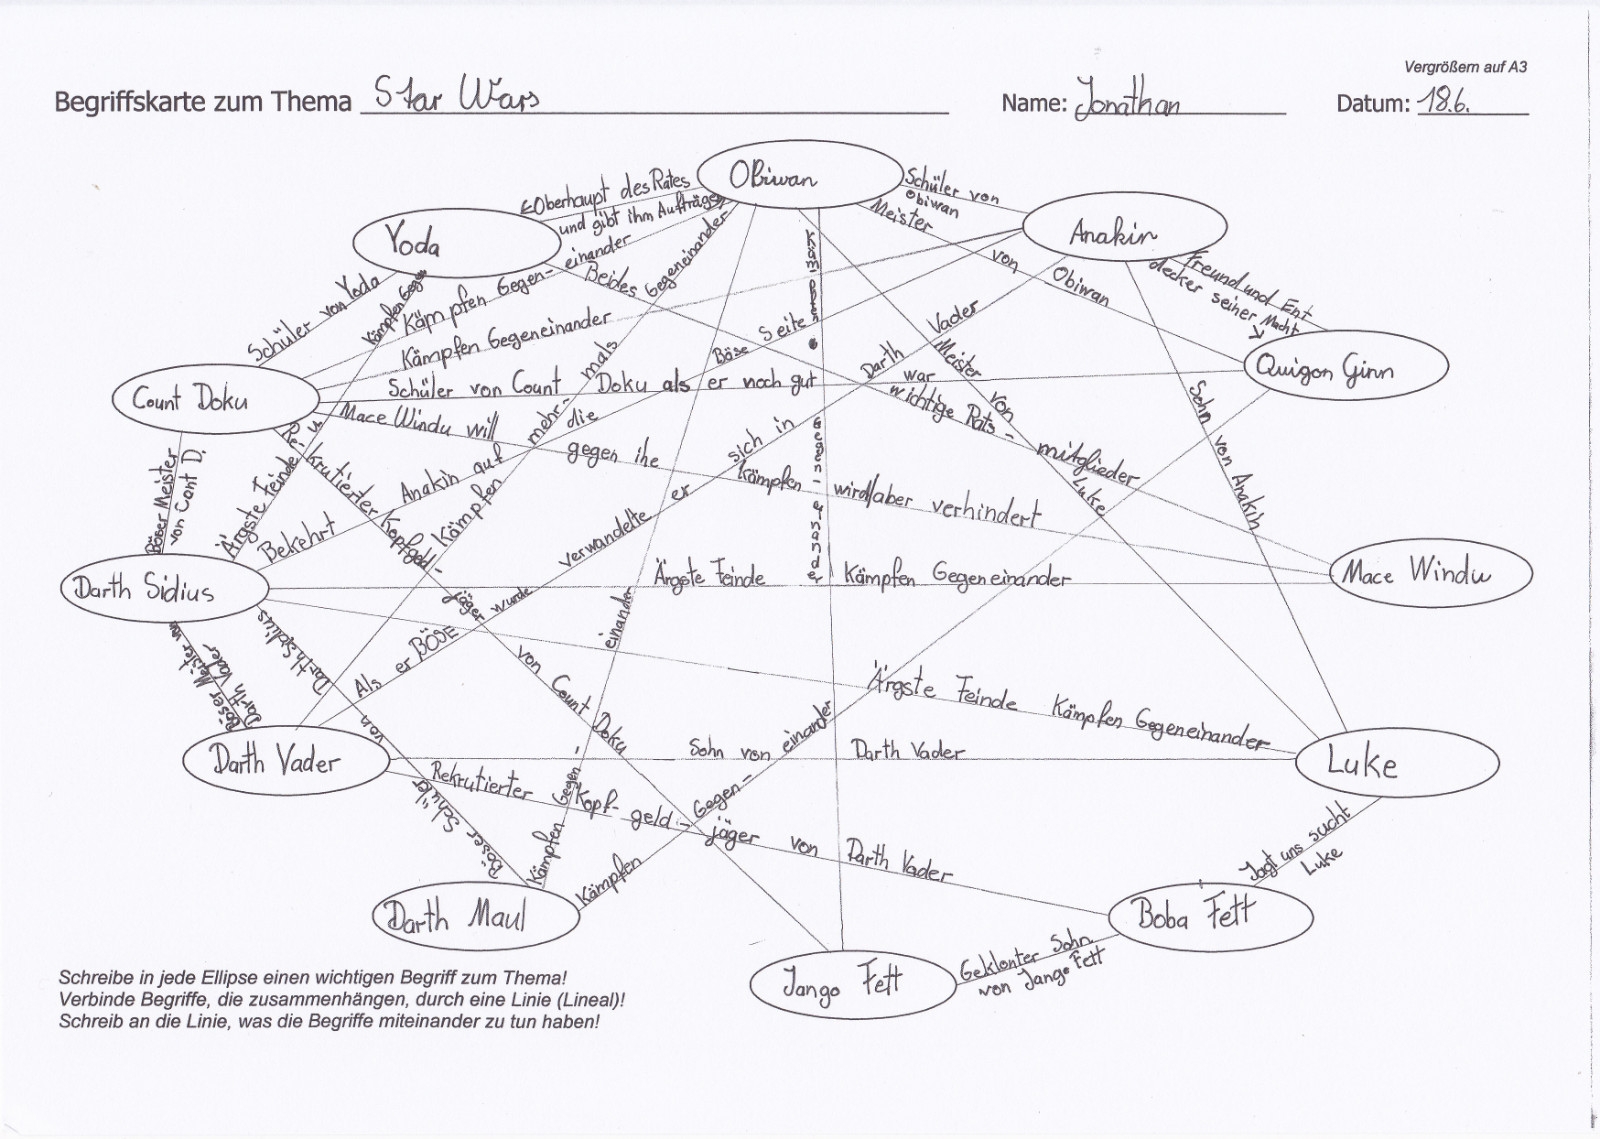 Vergrößern auf A3
Begriffskarte zum Thema Star Wars Name: Jonathan Datum: 18.6.
Obiwan
Yoda
Anakin
Quigon Ginn
Count Doku
Mace Windu
Darth Sidius
Luke
Darth Vader
Boba Fett
Darth Maul
Jango Fett
Oberhaupt des Rates
und gibt ihm Aufträge
Schüler von
Obiwan
Meister von Obiwan
Freund und Ent
decker seiner Macht
Schüler von Yoda
Kämpfen Gegen-einander
Kämpfen Gegeneinander
Schüler von Count Doku als er noch gut war
Mace Windu will gegen ihe kämpfen wird/aber verhindert
Beides wichtige Rats-mitglieder
Kämpfen mehr-mals Gegeneinander
Bekehrt Anakin auf die Böse Seite
Als er BÖSE wurde verwandelte er sich in Darth Vader
Kämpfen gegen-einander
Meister von Luke
Sohn von Anakin
Böser Meister
von Cont D.
Ärgste Feinde u. Kämpfen Gegen
Rekrutierter Kopfgeld-jäger von Count Doku
Ärgste Feinde Kämpfen Gegeneinander
Ärgste Feinde Kämpfen Gegeneihander
Böser Meister von
Darth Vader
Böser Schüler von Darth Sidius
Sohn von Darth Vader
Rekrutierter Kopf-geld-jäger von Darth Vader
Kämpfen Gegen-einander
Kämpfen Gegen-einander
Jagt uns sucht
Luke
Geklonter Sohn
von Jango Fett
Schreibe in jede Ellipse einen wichtigen Begriff zum Thema!
Verbinde Begriffe, die zusammenhängen, durch eine Linie (Lineal)!
Schreib an die Linie, was die Begriffe miteinander zu tun haben!